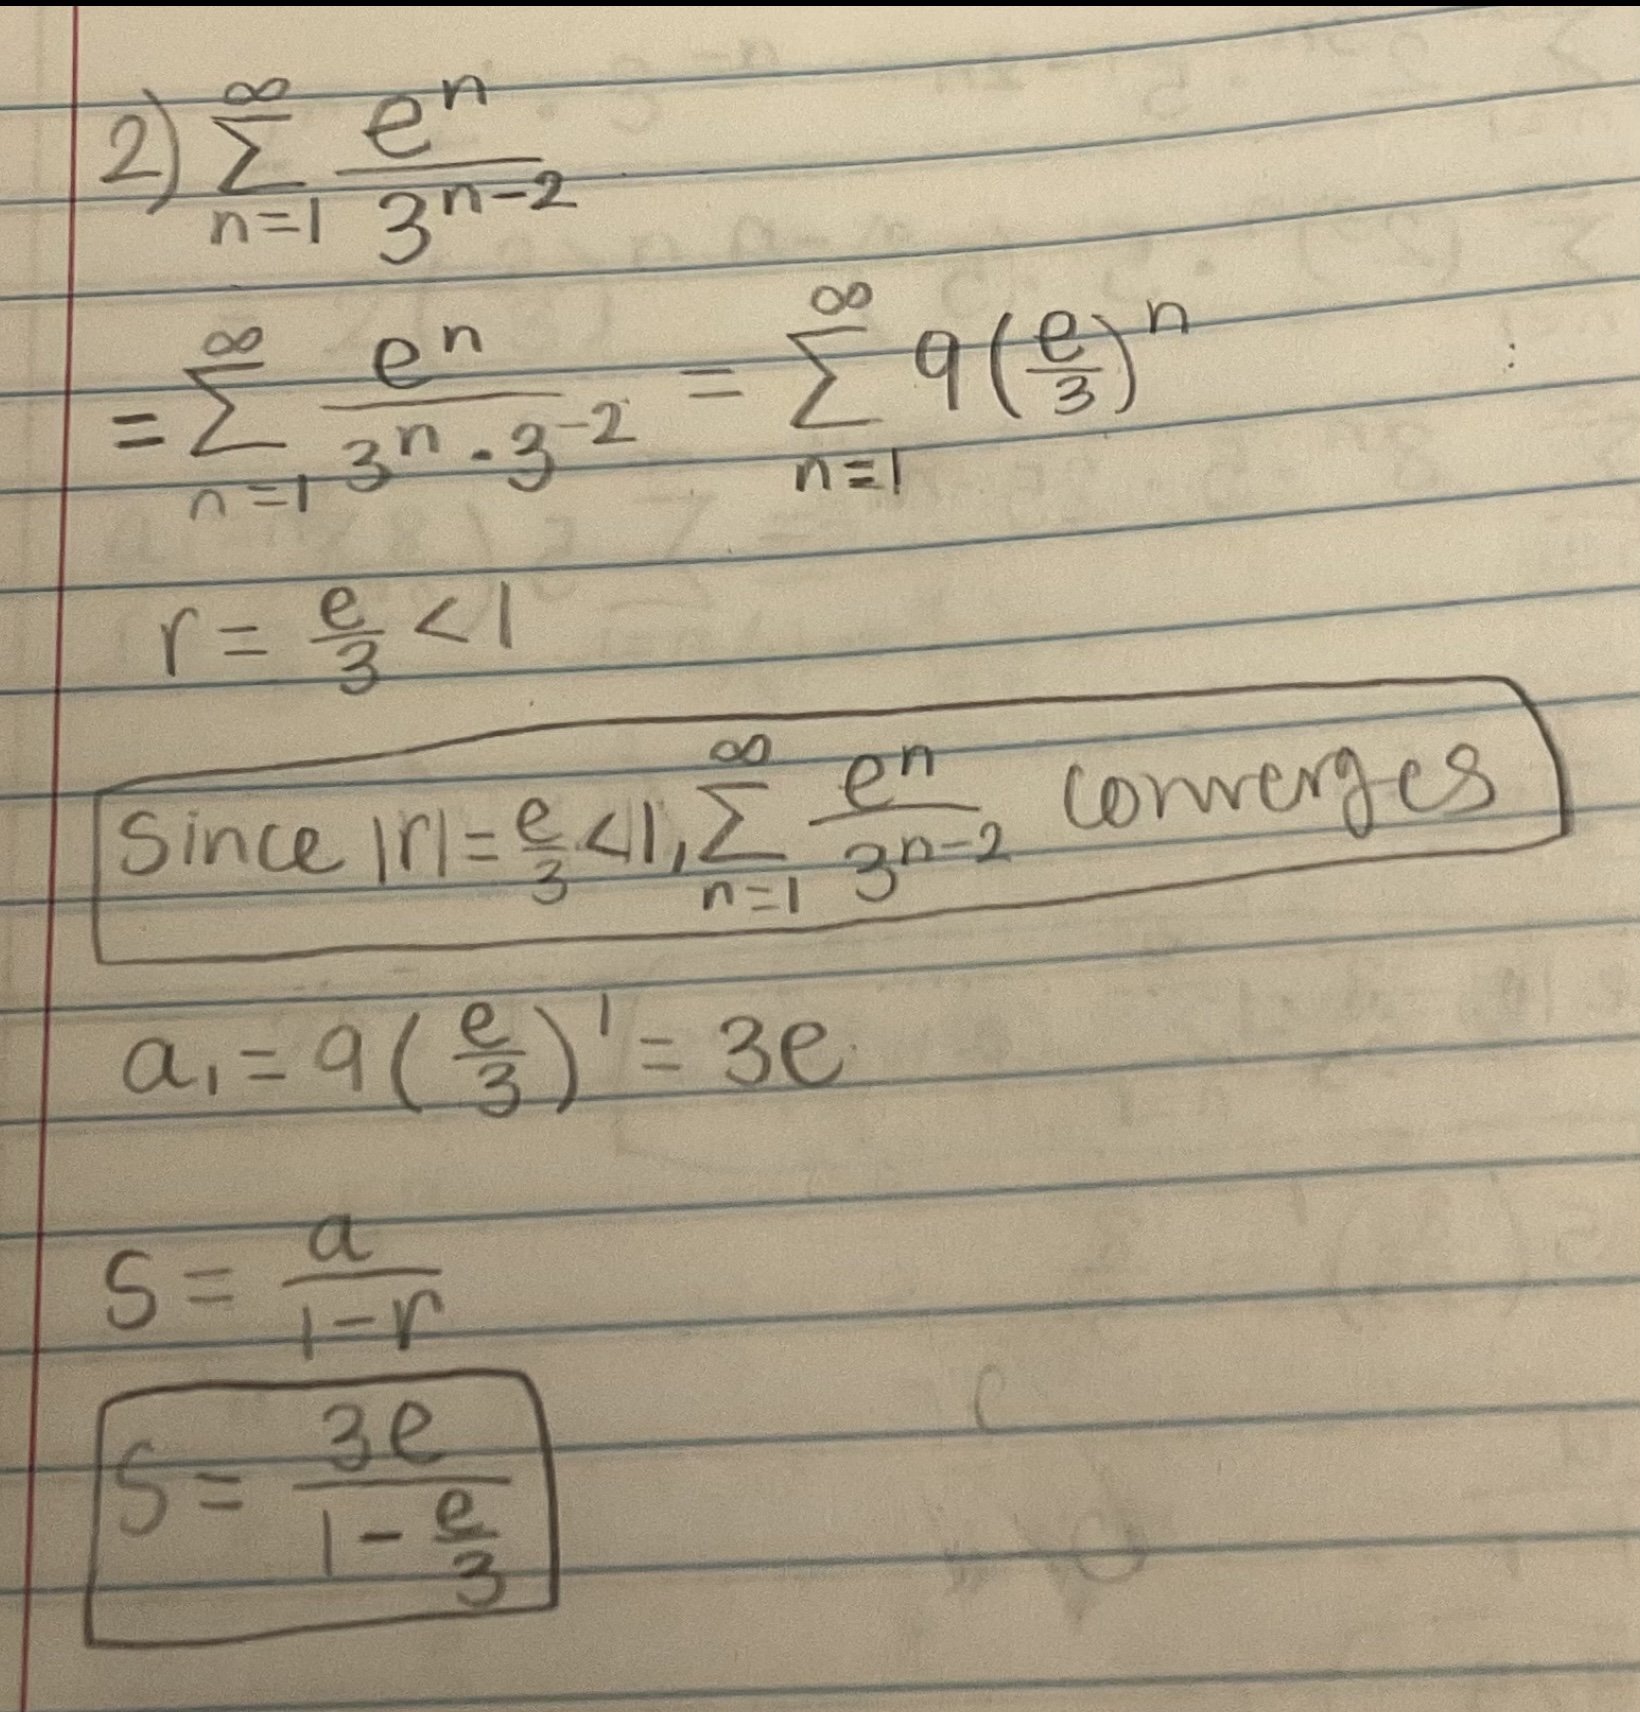 2) ∞∑n=1 e^n / 3^(n-2)
= ∞∑n=1 e^n / (3^n · 3^-2) = ∞∑n=1 9(e/3)^n
r = e/3 < 1
Since |r| = e/3 < 1, ∞∑n=1 e^n / 3^(n-2) converges
a₁ = 9(e/3)^1 = 3e
S = a / (1-r)
S = 3e / (1 - e/3)